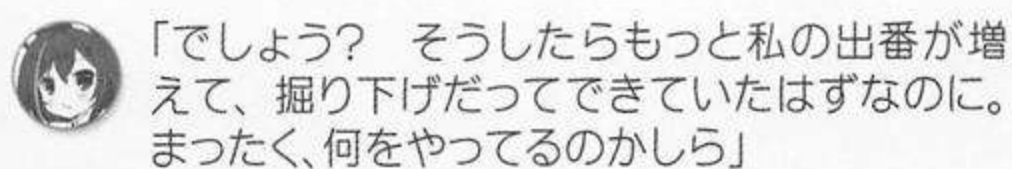 「でしょう?　そうしたらもっと私の出番が増
えて、掘り下げだってできていたはずなのに。
まったく、何をやってるのかしら」